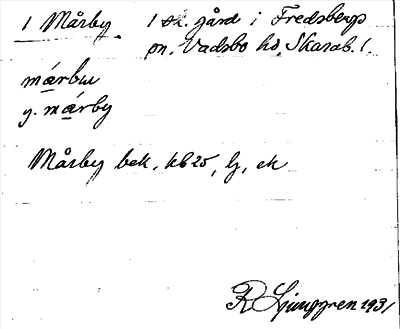 1 Mårby. 1 st. gård i Fredsbergs
sn, Vadsbo hd, Skarab. l.
márbu
y. márby
Mårby bek. kb 25, lj, ek
R Ljunggren 1931